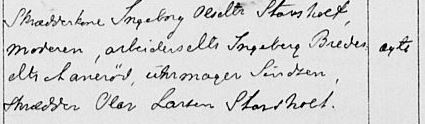 Skrædderkone Ingeborg Olsdtr Stavsholt,
moderen, arbeiderselts Ingeborg Bredes-
elts Aanerød, uhrmager Sindsen, ægte
skrædder Olav Larsen Stavsholt.